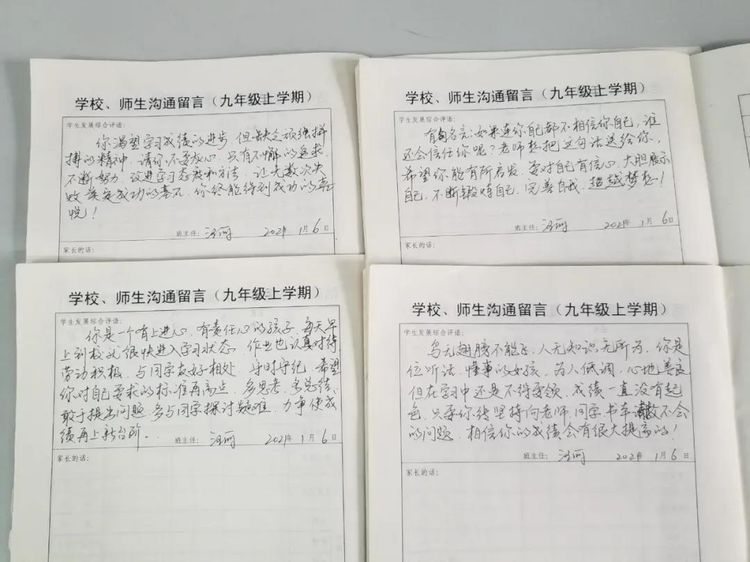 学校、师生沟通留言（九年级上学期）
学生发展综合评语：
你渴望学习成绩的进步，但缺乏顽强拼
搏的精神，请你不要灰心，只有不懈的追求，
不断努力，改进学习态度和方法，让无数次失
败奠定成功的基石，你终能得到成功的喜
悦！
班主任： 2021年 1月 6日
家长的话：
学校、师生沟通留言（九年级上学期）
学生发展综合评语：
有句名言：如果连你自己都不相信你自己，谁
还会信任你呢？老师想把这句话送给你，
希望你能有所启发，要对自己有信心，大胆展示
自己，不断锻炼自己，完善自我，超越梦想！
班主任： 2021年 1月 6日
家长的话：
学校、师生沟通留言（九年级上学期）
学生发展综合评语：
你是一个有上进心，有责任心的孩子，每天早
上到校就很快进入学习状态，作业也认真对待，
劳动积极，与同学友好相处，守时守纪，希望
你对自己要求的标准再高点，多思考，多总结，
敢于提出问题，多与同学探讨疑难，力争使成
绩再上新台阶。
班主任： 2021年 1月 6日
家长的话：
学校、师生沟通留言（九年级上学期）
学生发展综合评语：
鸟无翅膀不能飞，人无知识无所为，你是
位听话，懂事的女孩，为人低调，心地善良，
但在学习中还是不得要领，成绩一直没有起
色，只要你能坚持向老师，同学，书本请教不会
的问题，相信你的成绩会有很大提高的！
班主任： 2021年 1月 6日
家长的话：